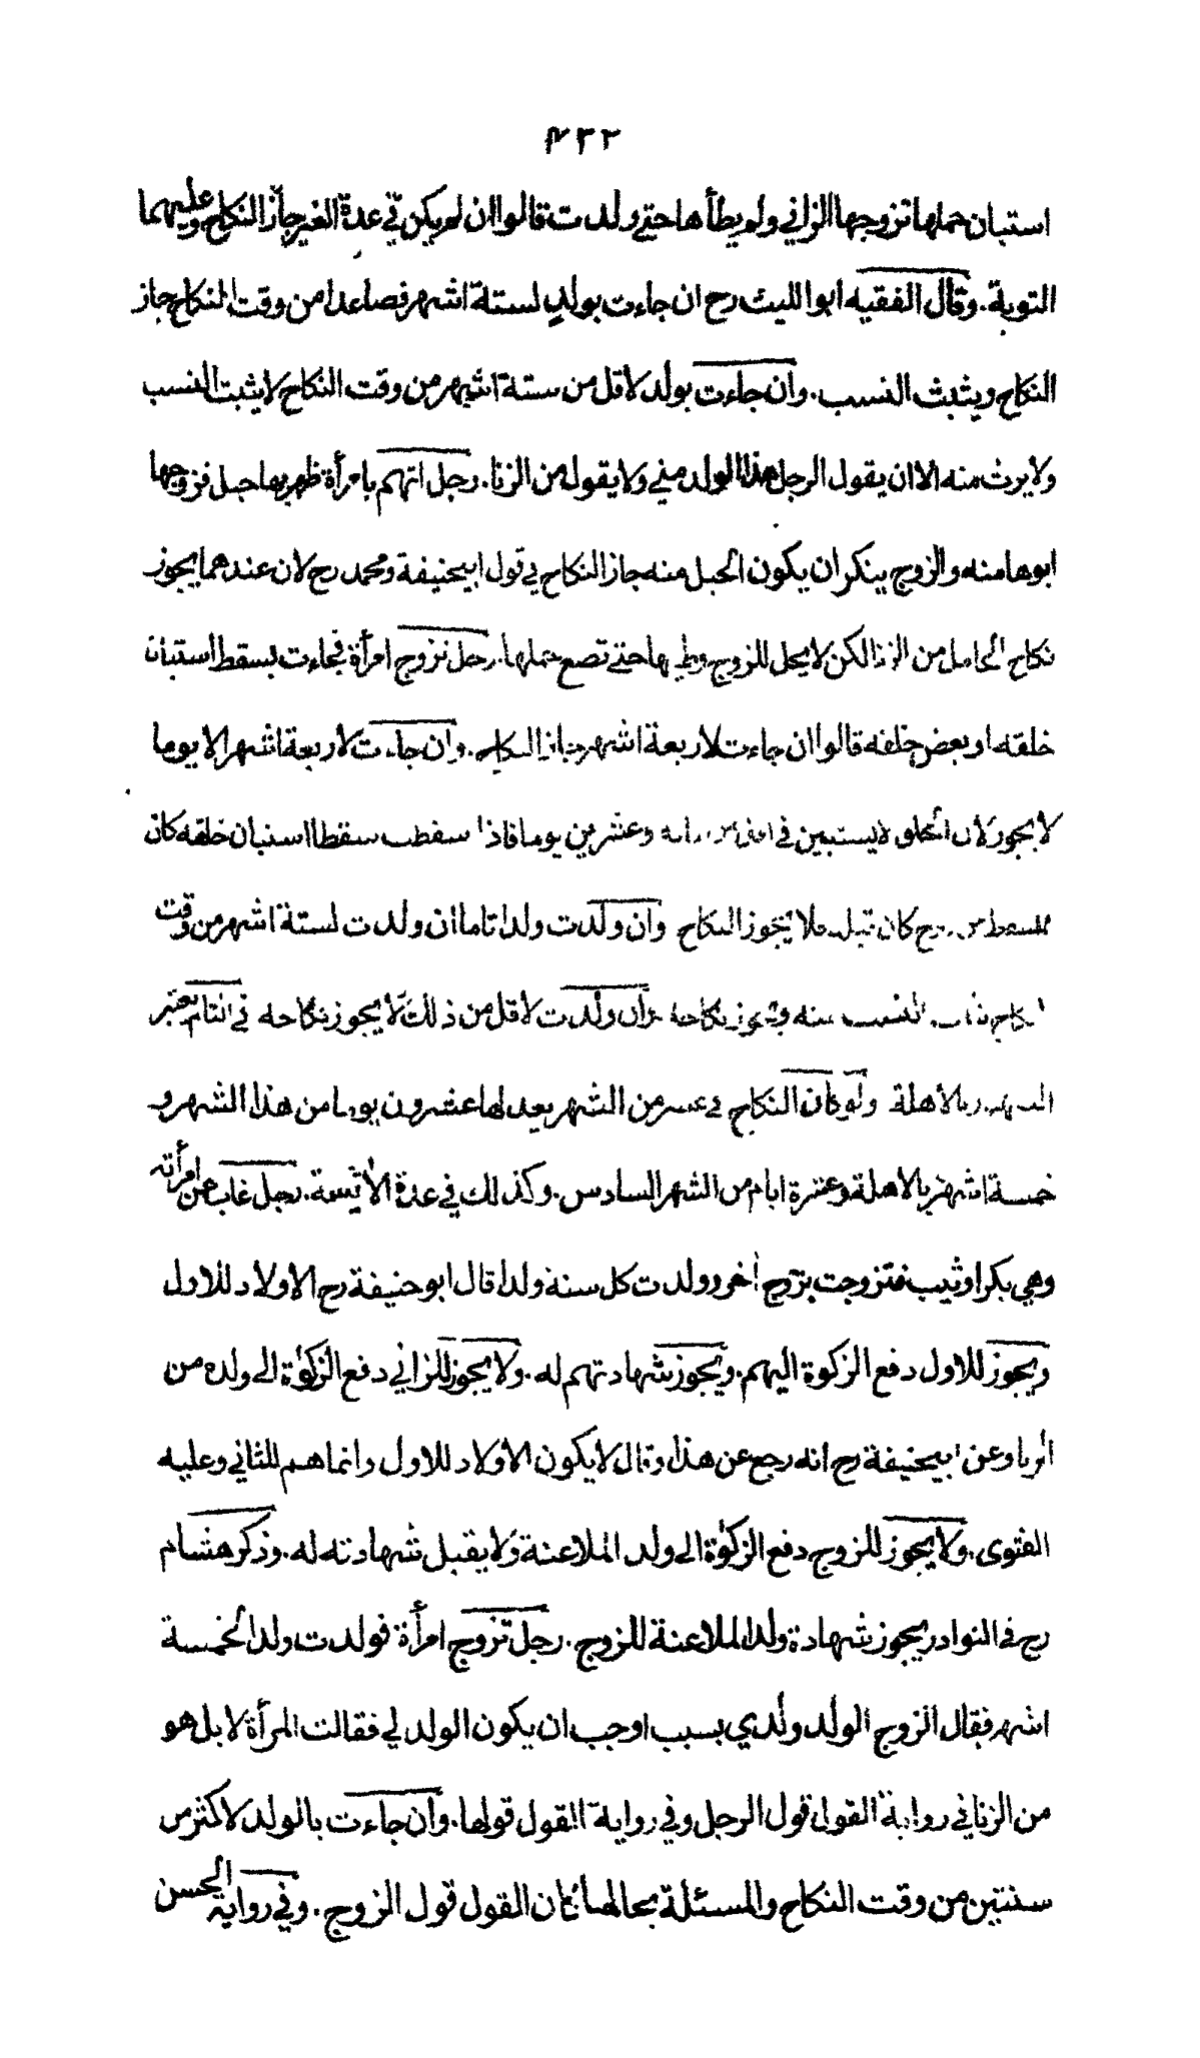 ٤٣٢
استبان حملها تزوجها الزاني ولم يطأها حتى ولدت قالوا ان لم يكن في عدة الغير جاز النكاح وعليهما
التوبة. وقال الفقيه ابو الليث رح ان جاءت بولد لستة اشهر فصاعدا من وقت النكاح جاز
النكاح ويثبت النسب. وان جاءت بولد لاقل من ستة اشهر من وقت النكاح لا يثبت النسب
ولا يرث منه الا ان يقول الرجل هذا الولد مني ولا يقول من الزنا. رجل اتهم بامرأة ظهر بها حبل فزوجها
ابوها منه والزوج ينكر ان يكون الحبل منه جاز النكاح في قول ابيحنيفة ومحمد رح لان عندهما يجوز
نكاح الحامل من الزنا لكن لا يحل للزوج وطيها حتى تضع حملها. رجل تزوج امرأة فجاءت بسقط استبان
خلقه او بعض خلقه قالوا ان جاءت لاربعة اشهر جاز النكاح. وان جاءت لاربعة اشهر الا يوما
لا يجوز لان الخلق لا يستبين في وعشرين يوما فاذا سقطت سقطا استبان خلقه كان
كان قبل فلا يجوز النكاح وان ولدت ولدا تاما ان ولدت لستة اشهر من وقت
النسب منه ويجوز نكاحه وان ولدت لاقل من ذلك لا يجوز نكاحه في التام يعتبر
بالاهلة ولو كان النكاح في عشر من الشهر يعد لها عشرون يوما من هذا الشهر و
خمسة اشهر بالاهلة وعشرة ايام من الشهر السادس. وكذلك في عدة الآئسة. رجل غاب عن امرأته
وهي بكر او ثيب فتزوجت بزوج آخر وولدت كل سنة ولدا قال ابو حنيفة رح الاولاد للاول
ويجوز للاول دفع الزكوة اليهم. ويجوز شهادتهم له. ولا يجوز للزاني دفع الزكوة الى ولده من
الزنا وعن ابيحنيفة رح انه رجع عن هذا وقال لا يكون الاولاد للاول وانما هم للثاني وعليه
الفتوى. ولا يجوز للزوج دفع الزكوة الى ولد الملاعنة ولا يقبل شهادته له. وذكر هشام
رح في النوادر يجوز شهادة ولد الملاعنة للزوج. رجل تزوج امرأة فولدت ولدا لخمسة
اشهر فقال الزوج الولد ولدي بسبب اوجب ان يكون الولد لي فقالت المرأة لا بل هو
من الزنا في رواية القول قول الرجل وفي رواية القول قولها. وان جاءت بالولد لاكثر من
سنتين من وقت النكاح والمسئلة بحالها كان القول قول الزوج. وفي رواية الحسن